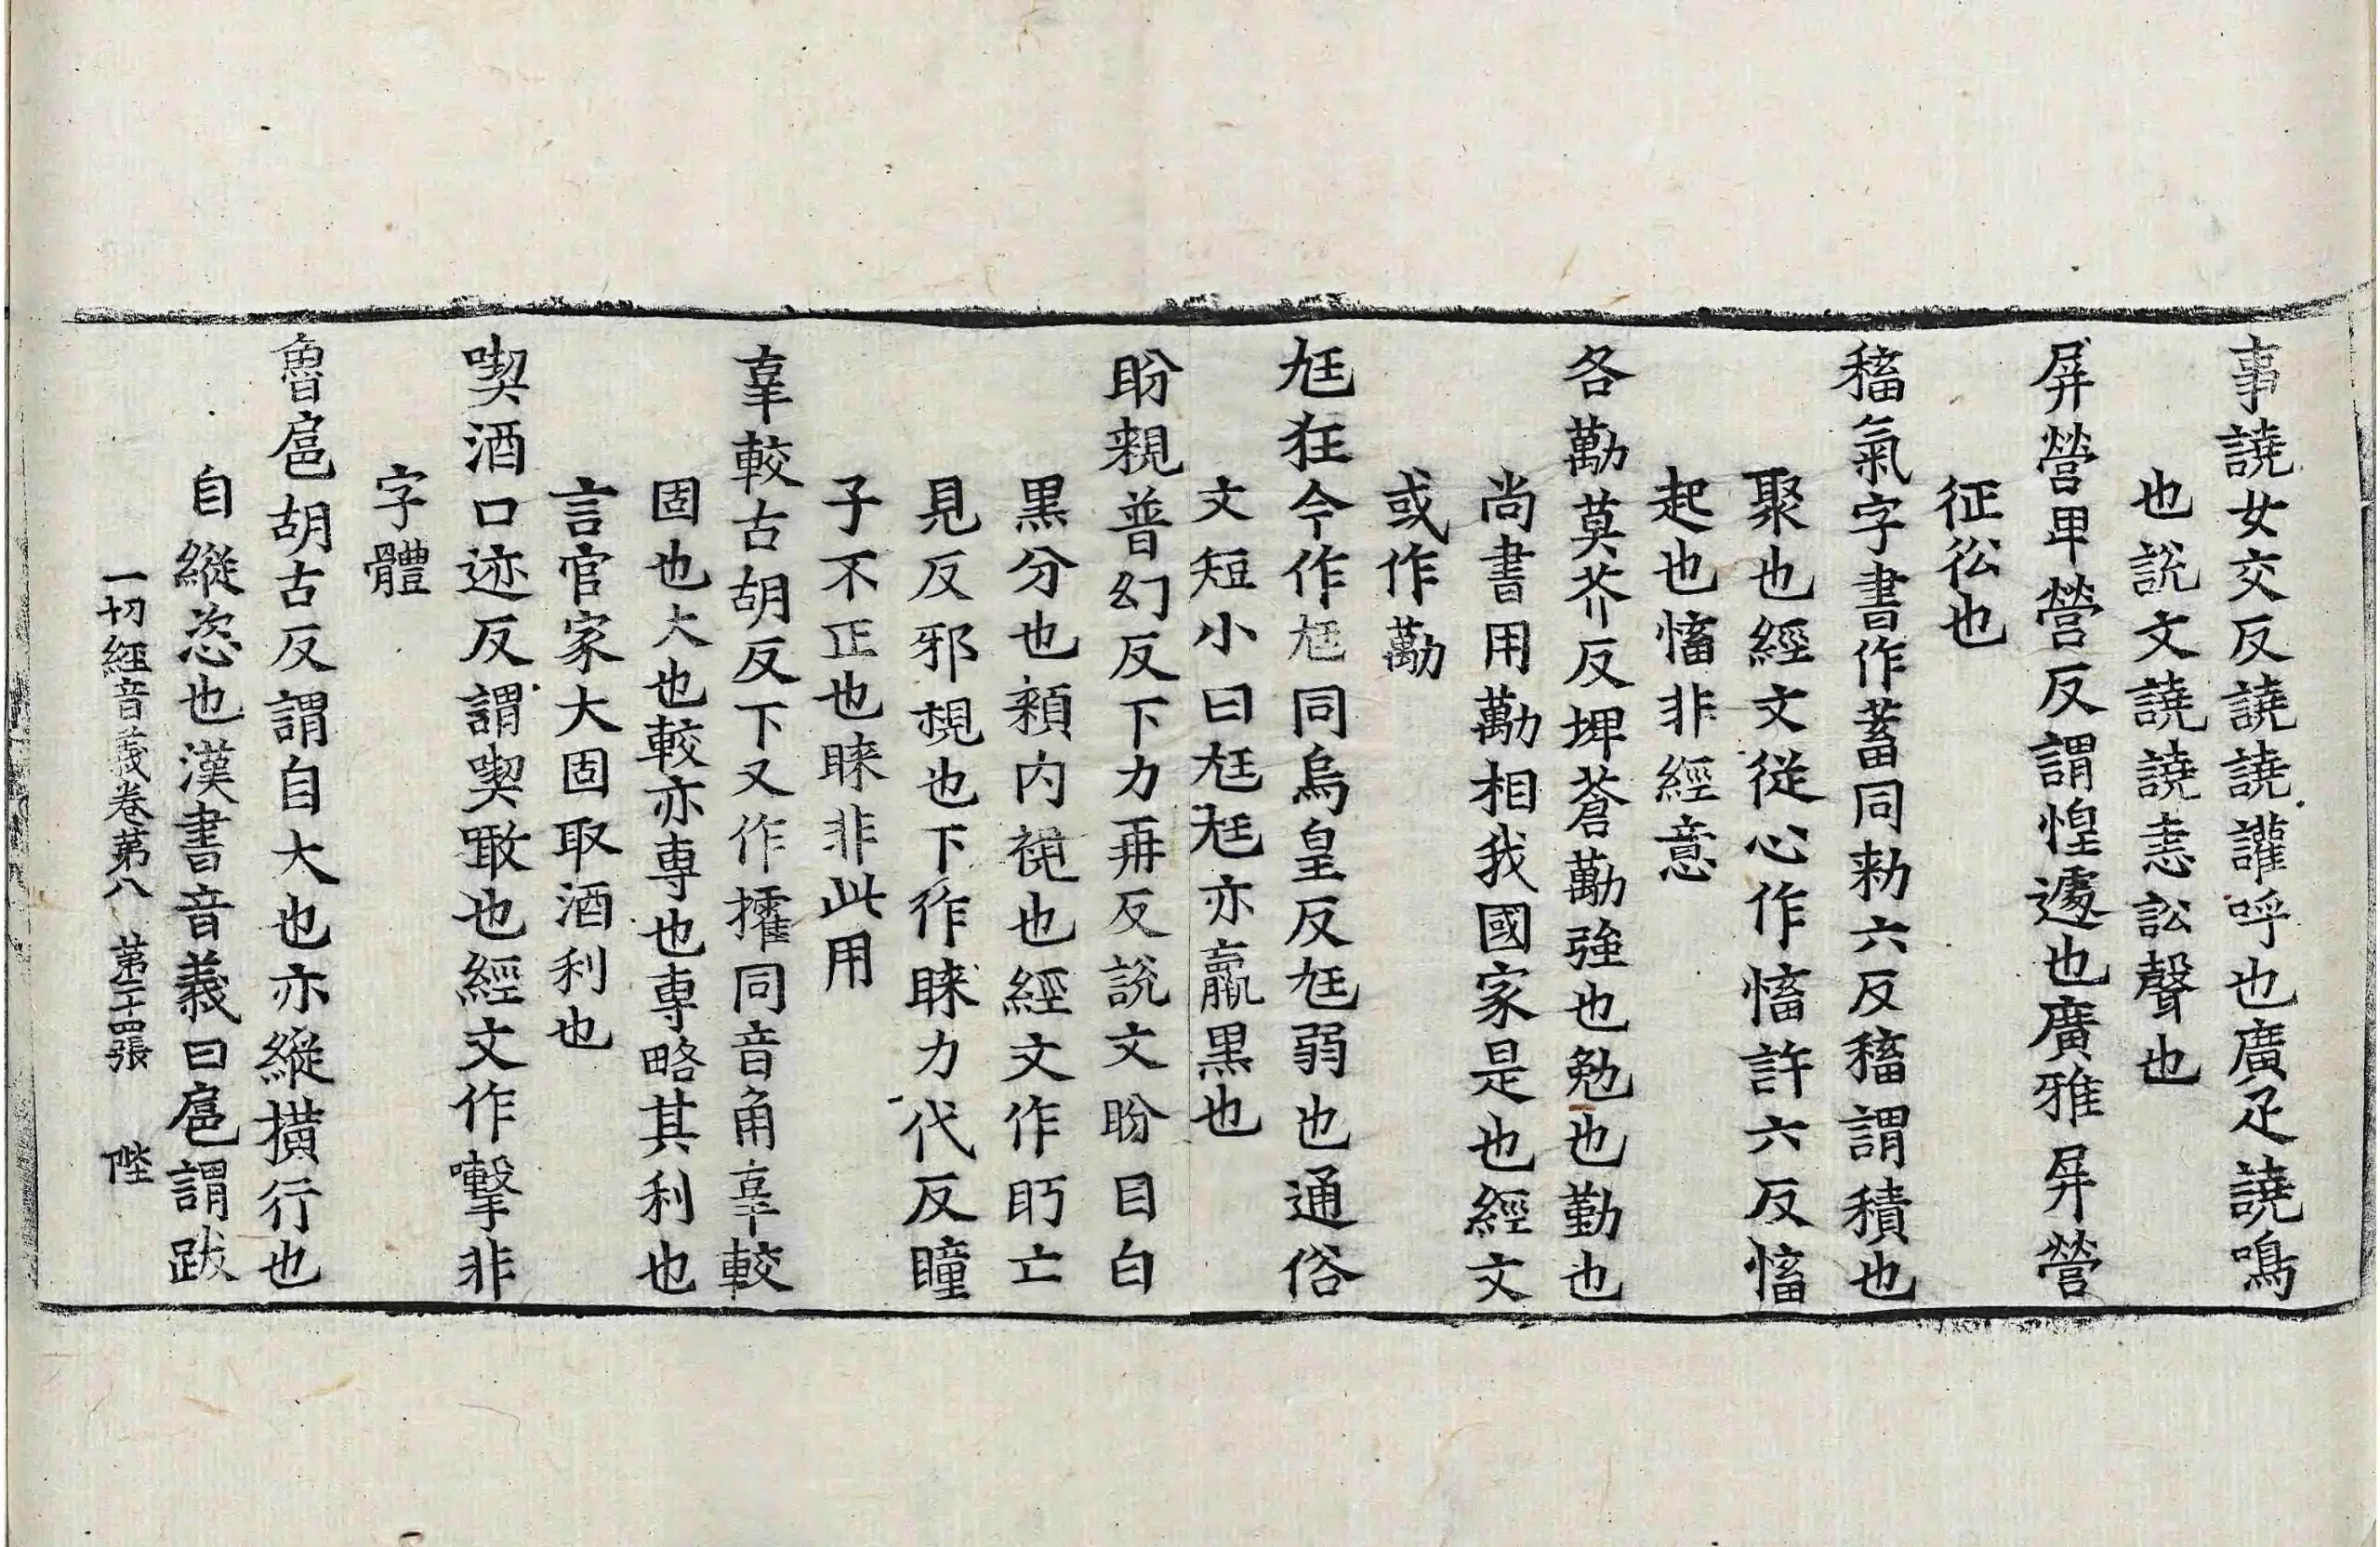 事譊女交反譊譊讙呼也廣疋譊鳴
也說文譊譊恚訟聲也
屏營卑營反謂惶遽也廣雅屏營
征彸也
稸氣字書作蓄同勑六反稸謂積也
聚也經文從心作慉許六反慉
起也慉非經意
各勱莫芥反埤蒼勱強也勉也勤也
尚書用勱相我國家是也經文
或作勱
尫狂今作尪同烏皇反尫弱也通俗
文短小曰尫尫亦羸黑也
盼親普幻反下力再反說文盼目白
黑分也頛內視也經文作眄亡
見反邪視也下作睞力代反瞳
子不正也睞非此用
辜較古胡反下又作㩴同音角辜較
固也大也較亦專也專略其利也
言官家大固取酒利也
喫酒口迹反謂喫噉也經文作㗉非
字體
魯扈胡古反謂自大也亦縱撗行也
自縱恣也漢書音義曰扈謂跋
一切經音義卷第八 第二十四張 陛